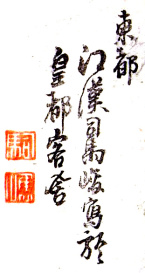 東都
江漢司馬峻寫於
皇都客舎